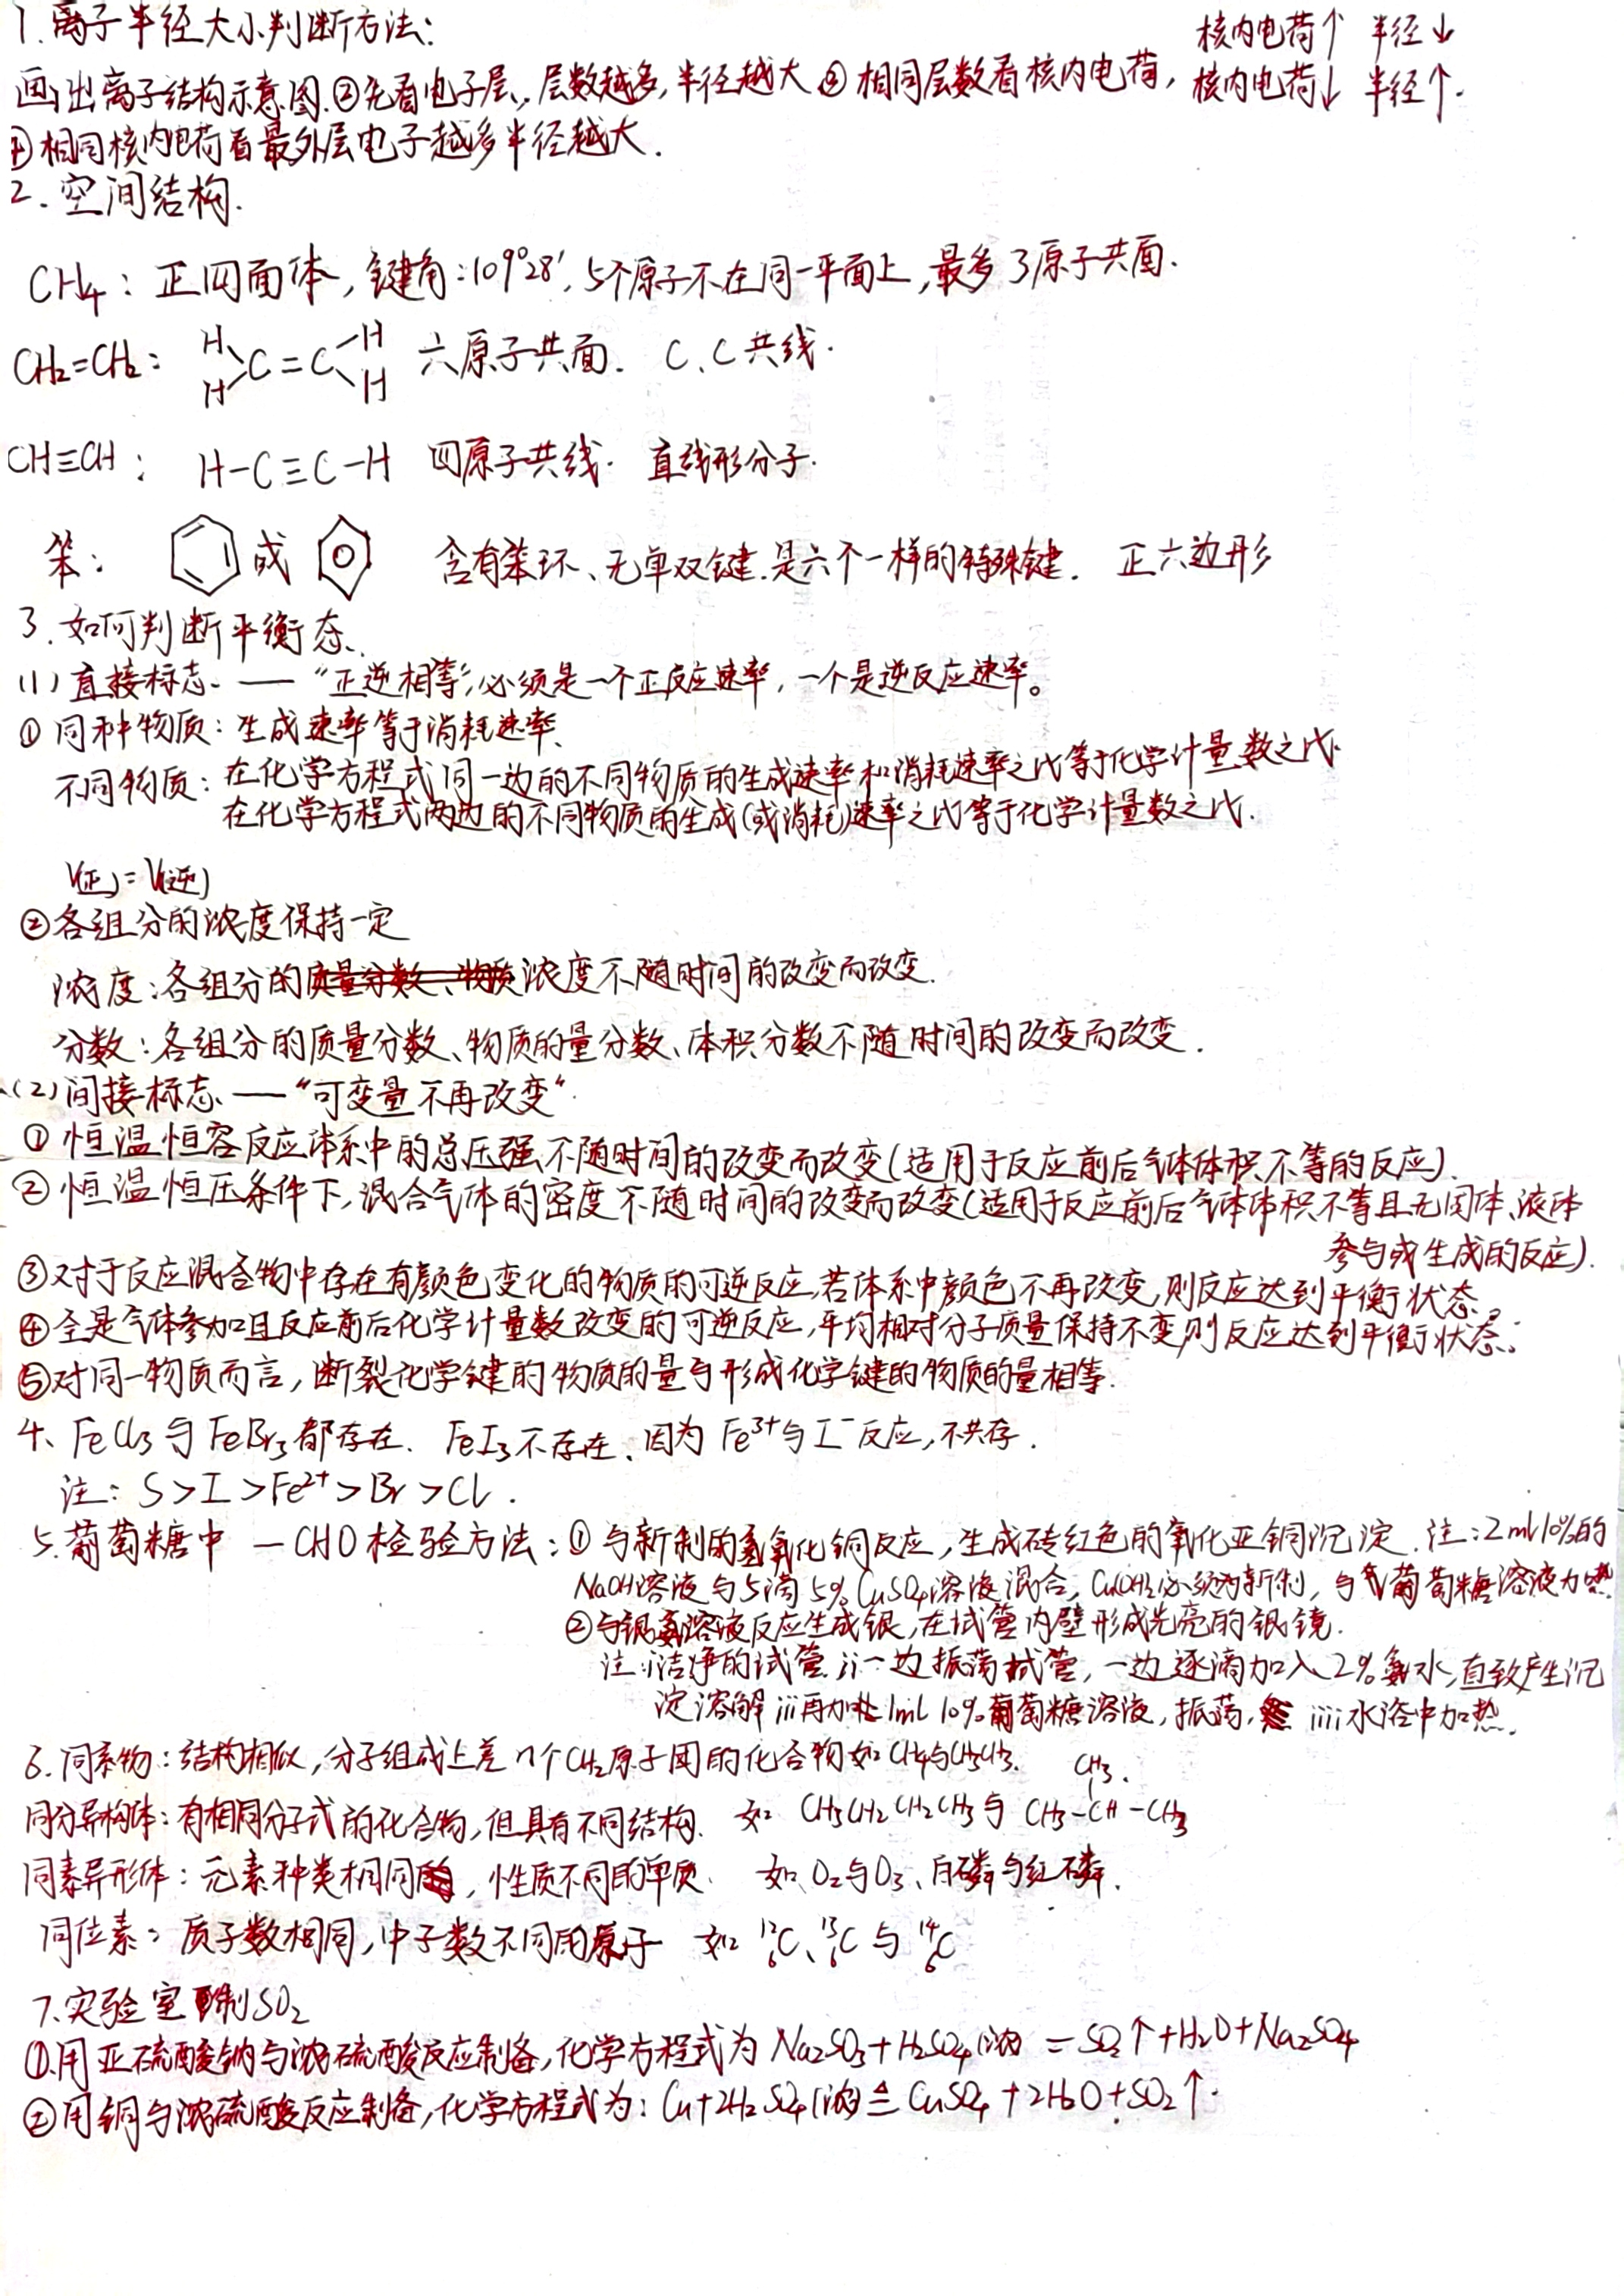 1.离子半径大小判断方法:
核内电荷↑ 半径↓
画出离子结构示意图.②先看电子层,层数越多,半径越大③相同层数看核内电荷, 核内电荷↓ 半径↑.
④相同核内电荷看最外层电子越多半径越大.
2.空间结构.
CH₄: 正四面体,键角:109°28′,5个原子不在同一平面上,最多3原子共面.
CH₂=CH₂: H H C=C H H 六原子共面. C、C共线.
CH≡CH: H-C≡C-H 四原子共线. 直线形分子.
苯: 或 含有苯环、无单双键.是六个一样的特殊键. 正六边形
3.如何判断平衡态.
(1)直接标志.——“正逆相等”,必须是一个正反应速率,一个是逆反应速率。
①同种物质:生成速率等于消耗速率.
不同物质:在化学方程式同一边的不同物质的生成速率和消耗速率之比等于化学计量数之比.
在化学方程式两边的不同物质的生成(或消耗)速率之比等于化学计量数之比.
V(正)=V(逆)
②各组分的浓度保持一定
浓度:各组分的浓度不随时间的改变而改变.
分数:各组分的质量分数、物质的量分数、体积分数不随时间的改变而改变.
(2)间接标志.——“可变量不再改变”.
①恒温恒容反应体系中的总压强不随时间的改变而改变(适用于反应前后气体体积不等的反应).
②恒温恒压条件下,混合气体的密度不随时间的改变而改变(适用于反应前后气体体积不等且无固体、液体
参与或生成的反应).
③对于反应混合物中存在有颜色变化的物质的可逆反应,若体系中颜色不再改变,则反应达到平衡状态;
④全是气体参加且反应前后化学计量数改变的可逆反应,平均相对分子质量保持不变,则反应达到平衡状态;
⑤对同一物质而言,断裂化学键的物质的量与形成化学键的物质的量相等.
4、FeCl₃与FeBr₃都存在. FeI₃不存在.因为Fe³⁺与I⁻反应,不共存.
注: S>I>Fe²⁺>Br>Cl.
5.葡萄糖中 —CHO检验方法:①与新制的氢氧化铜反应,生成砖红色的氧化亚铜沉淀.注:2ml10%的
NaOH溶液与5滴5%CuSO₄溶液混合,Cu(OH)₂必须为新制,与葡萄糖溶液加热
②与银氨溶液反应生成银,在试管内壁形成光亮的银镜.
注:i洁净的试管 ii一边振荡试管,一边逐滴加入2%氨水,直致产生沉
淀溶解 iii再加1ml 10%葡萄糖溶液,振荡, iiii水浴中加热.
6.同系物:结构相似,分子组成上差n个CH₂原子团的化合物如CH₄与CH₃CH₃.
CH₃.
同分异构体:有相同分子式的化合物,但具有不同结构. 如 CH₃CH₂CH₂CH₃与 CH₃-CH-CH₃
同素异形体:元素种类相同,性质不同的单质. 如O₂与O₃、白磷与红磷.
同位素: 质子数相同,中子数不同的原子 如 ¹²₆C、¹³₆C 与 ¹⁴₆C
7.实验室制SO₂
①.用亚硫酸钠与浓硫酸反应制备,化学方程式为 Na₂SO₃+H₂SO₄(浓) =SO₂↑+H₂O+Na₂SO₄
②用铜与浓硫酸反应制备,化学方程式为: Cu+2H₂SO₄(浓)≜CuSO₄+2H₂O+SO₂↑.